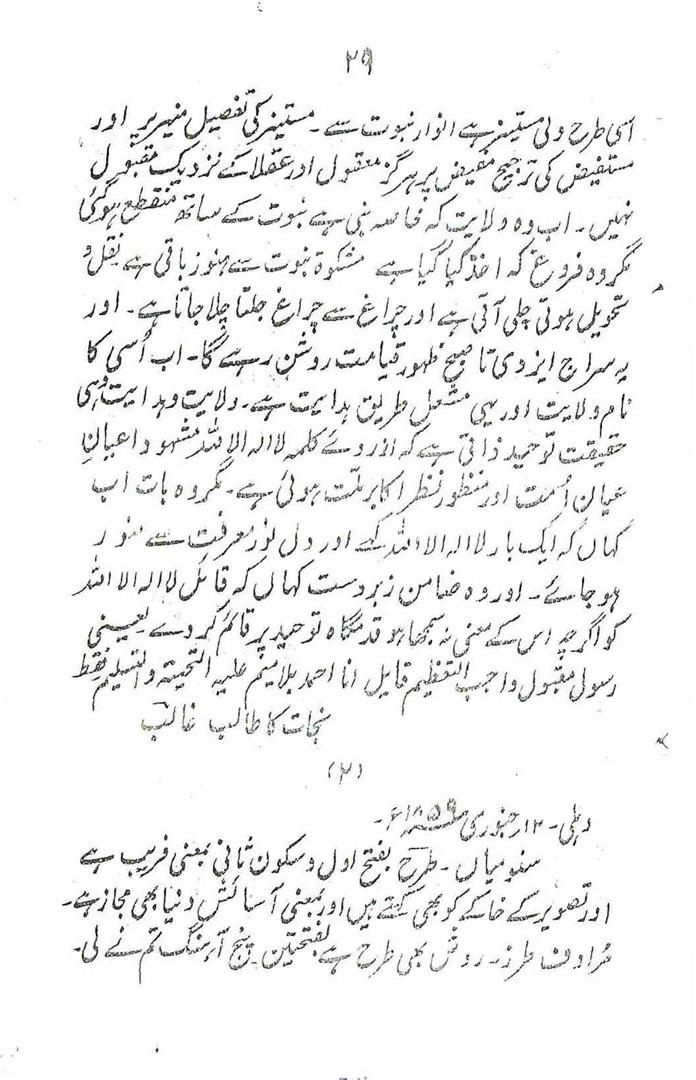 ۲۹
اسی طرح ولی مستنیر ہے انوار نبوت سے۔ مستنیر کی تفصیل منیر پر اور
مستفیض کی ترجیح مفیض پر ہرگز معقول اور عقلا کے نزدیک مقبول
نہیں۔ اب وہ ولایت کہ خاصہ نبی ہے نبوت کے ساتھ منقطع ہو گئی
مگر وہ فروغ کہ اخذ کیا گیا ہے مشکوٰۃ نبوت سے ہنوز باقی ہے نقل و
تحویل ہوتی چلی آتی ہے اور چراغ سے چراغ جلتا چلا جاتا ہے۔ اور
یہ سراج ایزدی تا صبح ظہور قیامت روشن رہے گا۔ اب اُسی کا
نام ولایت اور یہی مشعل طریق ہدایت ہے۔ ولایت وہدایت وہی
حقیقت توحید ذاتی ہے کہ از روے کلمہ لا الہ الا اللہ مشہود اعیان
عیان اُمت اور منظور نظر اکابر ملّت ہوئی ہے۔ مگر وہ بات اب
کہاں کہ ایک بار لا الہ الا اللہ کہے اور دل نور معرفت سے منور
ہو جائے۔ اور وہ ضامن زبردست کہاں کہ قائل لا الہ الا اللہ
کو اگرچہ اس کے معنی نہ سمجھا ہو قدمگاہ توحید پر قائم کر دے۔ یعنی
رسول مقبول واجب التعظیم قایل انا احمد بلا میم علیہ التحیتہ والتسلیم فقط
نجات کا طالب غالب
(۲)
دہلی۔ ۱۲ر جنوری ۱۸۵۹ء۔
سنو میاں۔ طرح بفتح اول و سکون ثانی بمعنی فریب ہے
اور تصویر کے خاکے کو بھی کہتے ہیں اور بمعنی آسائش دنیا بھی مجاز ہے۔
مرادف طرز۔ روش بھی طرح ہے بفتحتین۔ پنج آہنگ تم نے لی۔